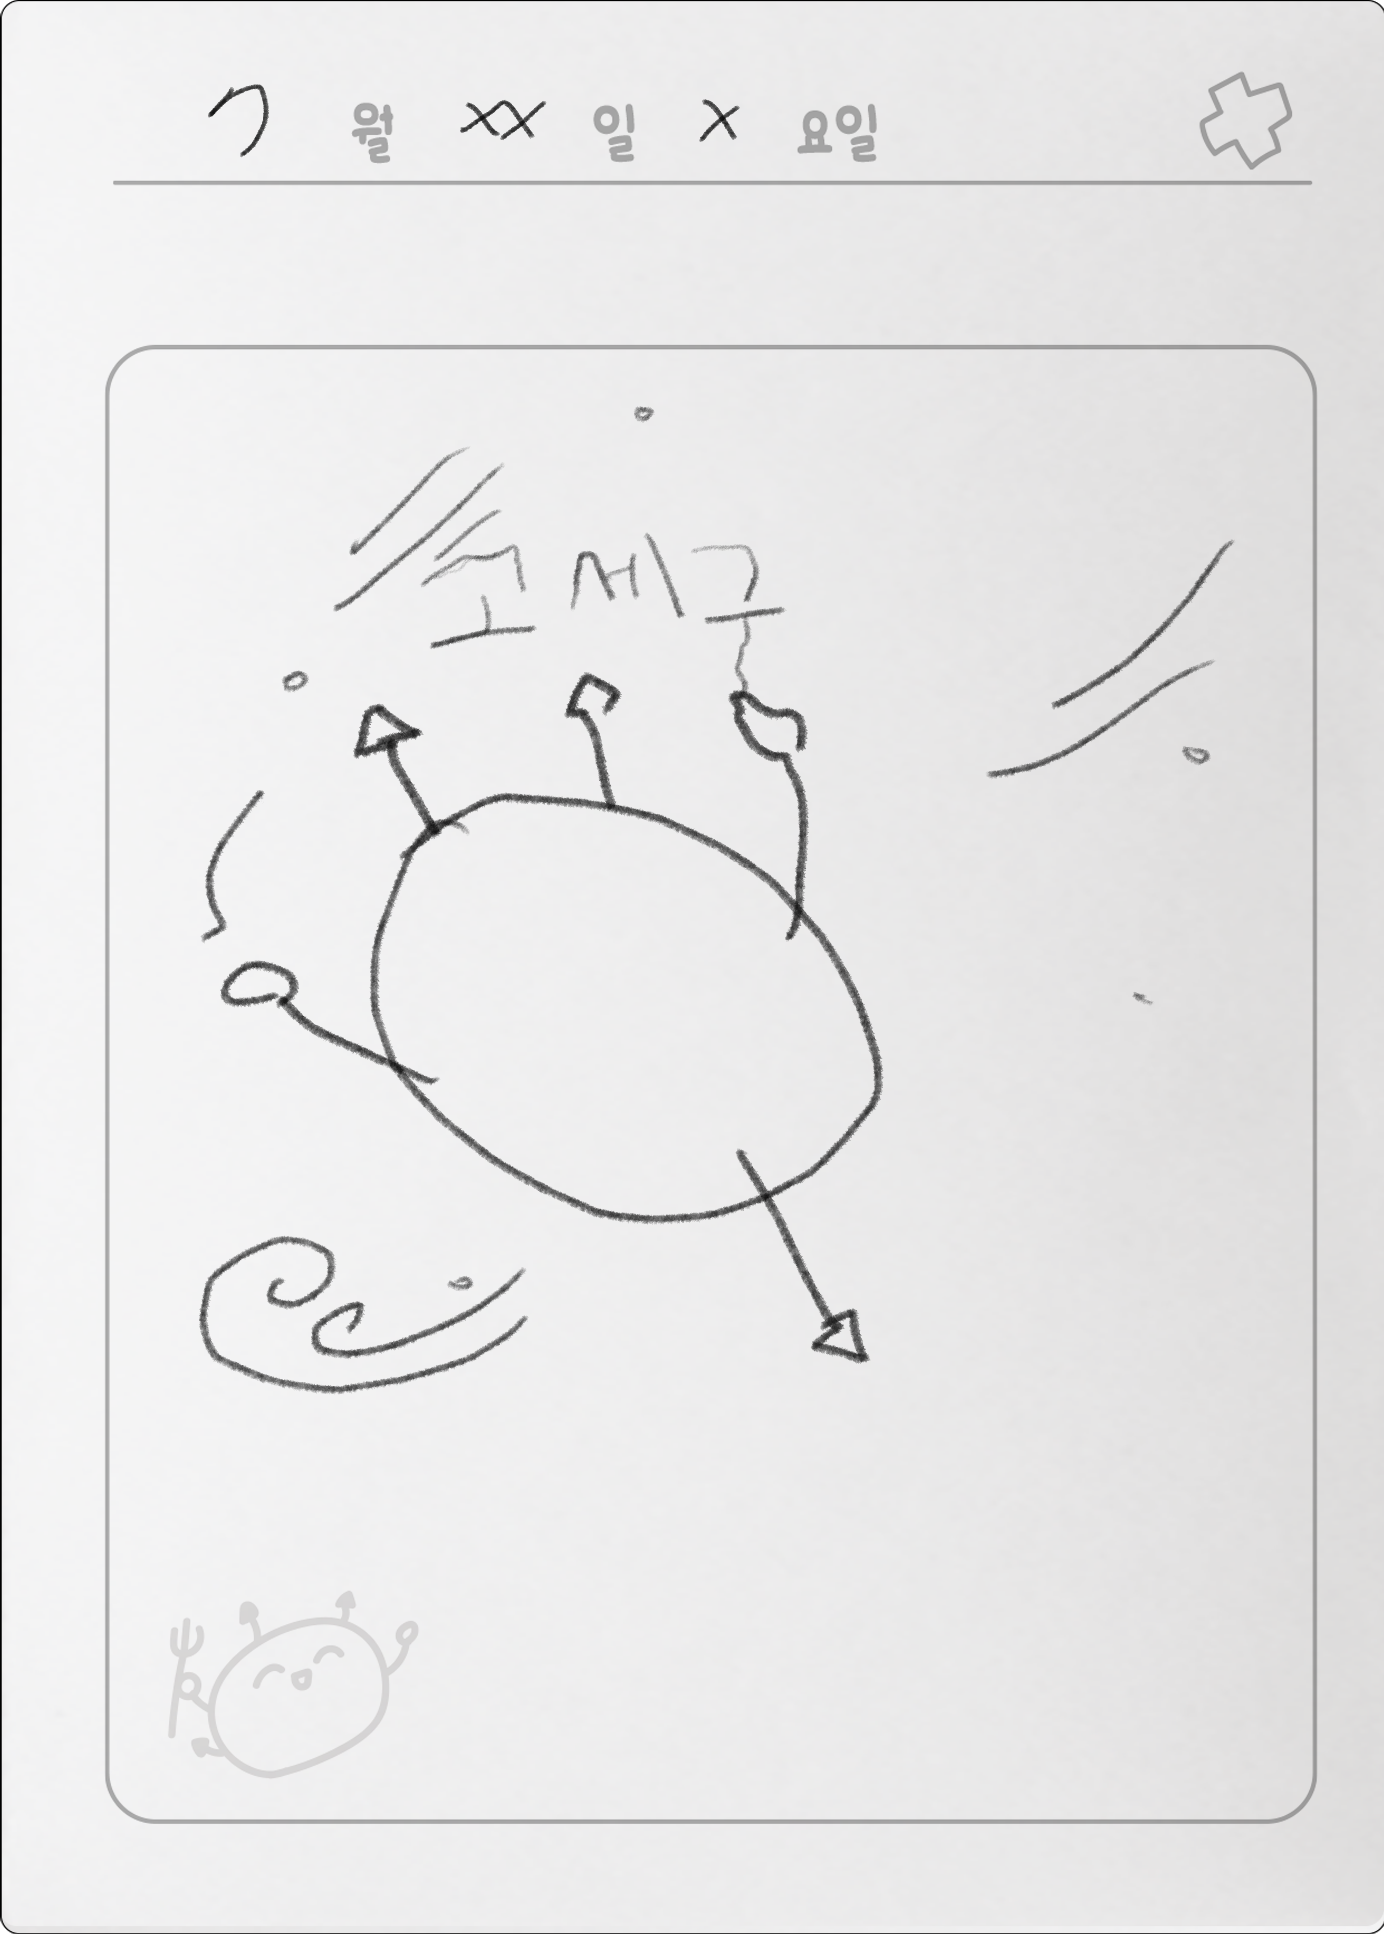 7 월 xx 일 x 요일
고세구